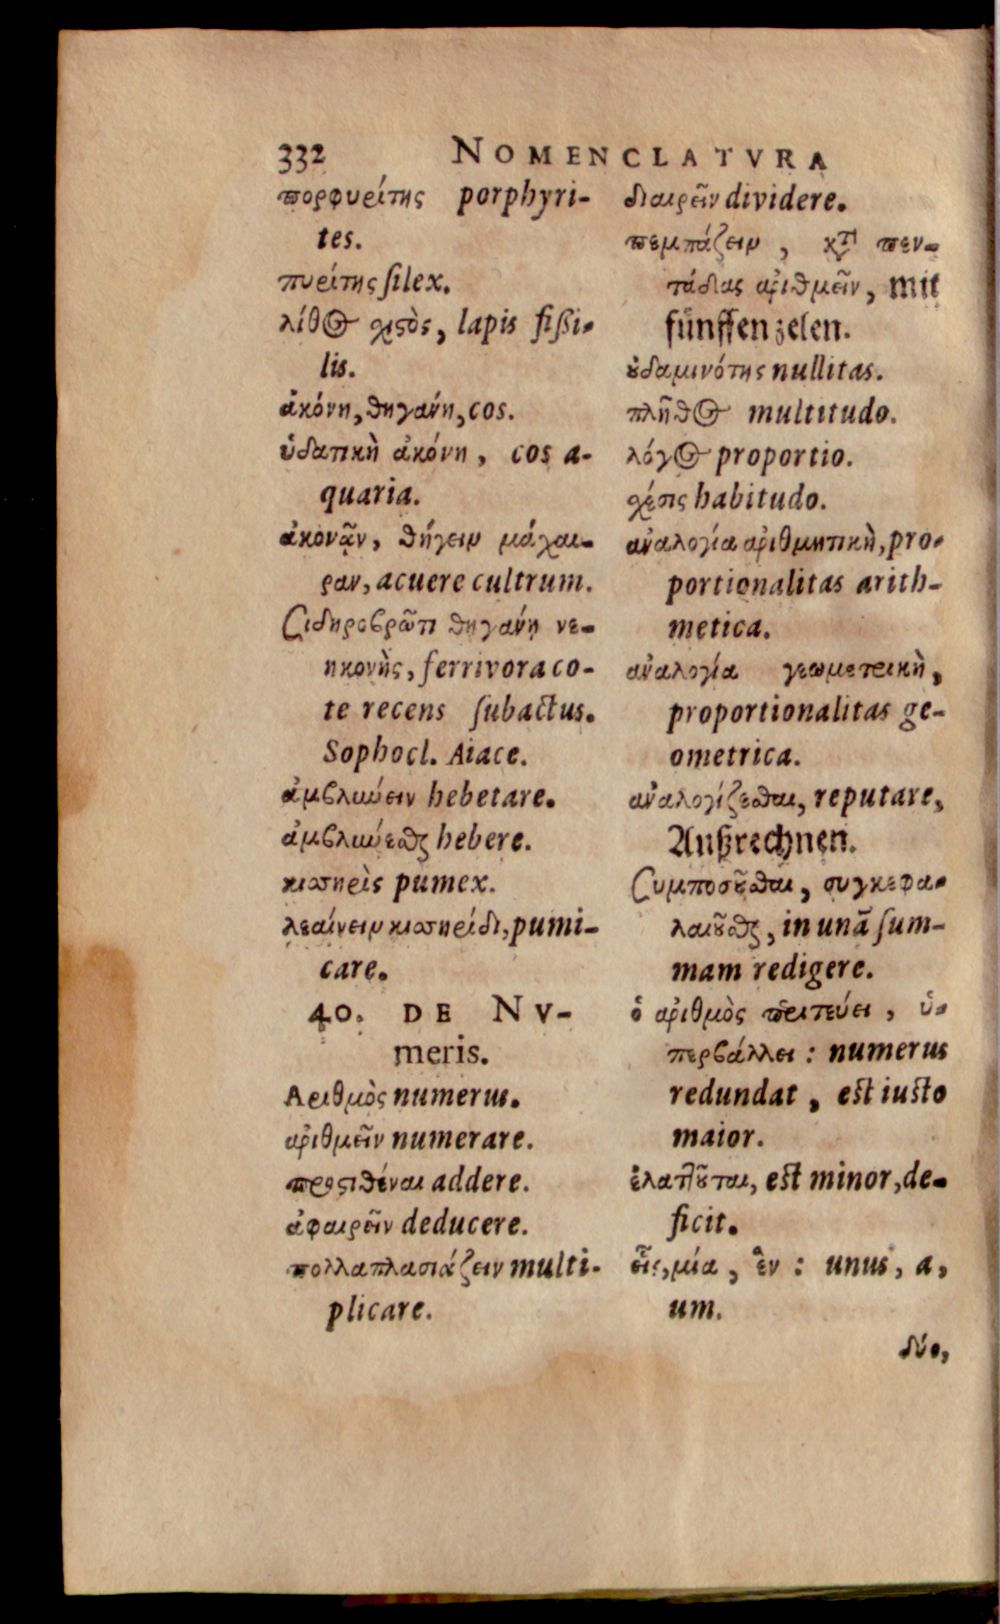 332 NOMENCLATVRA
πορφυρίτης porphyri-
tes.
πυρίτης ſilex.
λίθος σχιςὸς, lapis fißi-
lis.
ἀκόνη, θηγάνη, cos.
ὑδατικὴ ἀκόνη, cos a-
quaria.
ἀκονᾷν, θήγειν μάχαι-
ραν, acuere cultrum.
Σιδηροβρῶτι θηγάνῃ νε-
ηκονὴς, ferrivora co-
te recens ſubactus.
Sophocl. Aiace.
ἀμβλύειν hebetare.
ἀμβλύεσθαι hebere.
κισσηρὶς pumex.
λεαίνειν κισσηρίδι, pumi-
care.
40. DE NV-
meris.
Αριθμὸς numerus.
ἀριθμεῖν numerare.
προςιθέναι addere.
ἀφαιρεῖν deducere.
πολλαπλασιάζειν multi-
plicare.
διαιρεῖν dividere.
πεμπάζειν, κατὰ πεν-
τάδας ἀριθμεῖν, mit
fünffen zelen.
οὐδαμινότης nullitas.
πλῆθος multitudo.
λόγος proportio.
σχέσις habitudo.
ἀναλογία ἀριθμητικὴ, pro-
portionalitas arith-
metica.
ἀναλογία γεωμετρικὴ,
proportionalitas ge-
ometrica.
ἀναλογίζεσθαι, reputare,
Außrechnen.
Συμποσοῦσθαι, συγκεφα-
λαιοῦσθαι, in unã ſum-
mam redigere.
ὁ ἀριθμὸς περιτεύει, ὑ-
περβάλλει: numerus
redundat, est iusto
maior.
ἐλαττοῦται, est minor, de-
ficit.
εἷς, μία, ἓν: unus, a,
um.
δύο,